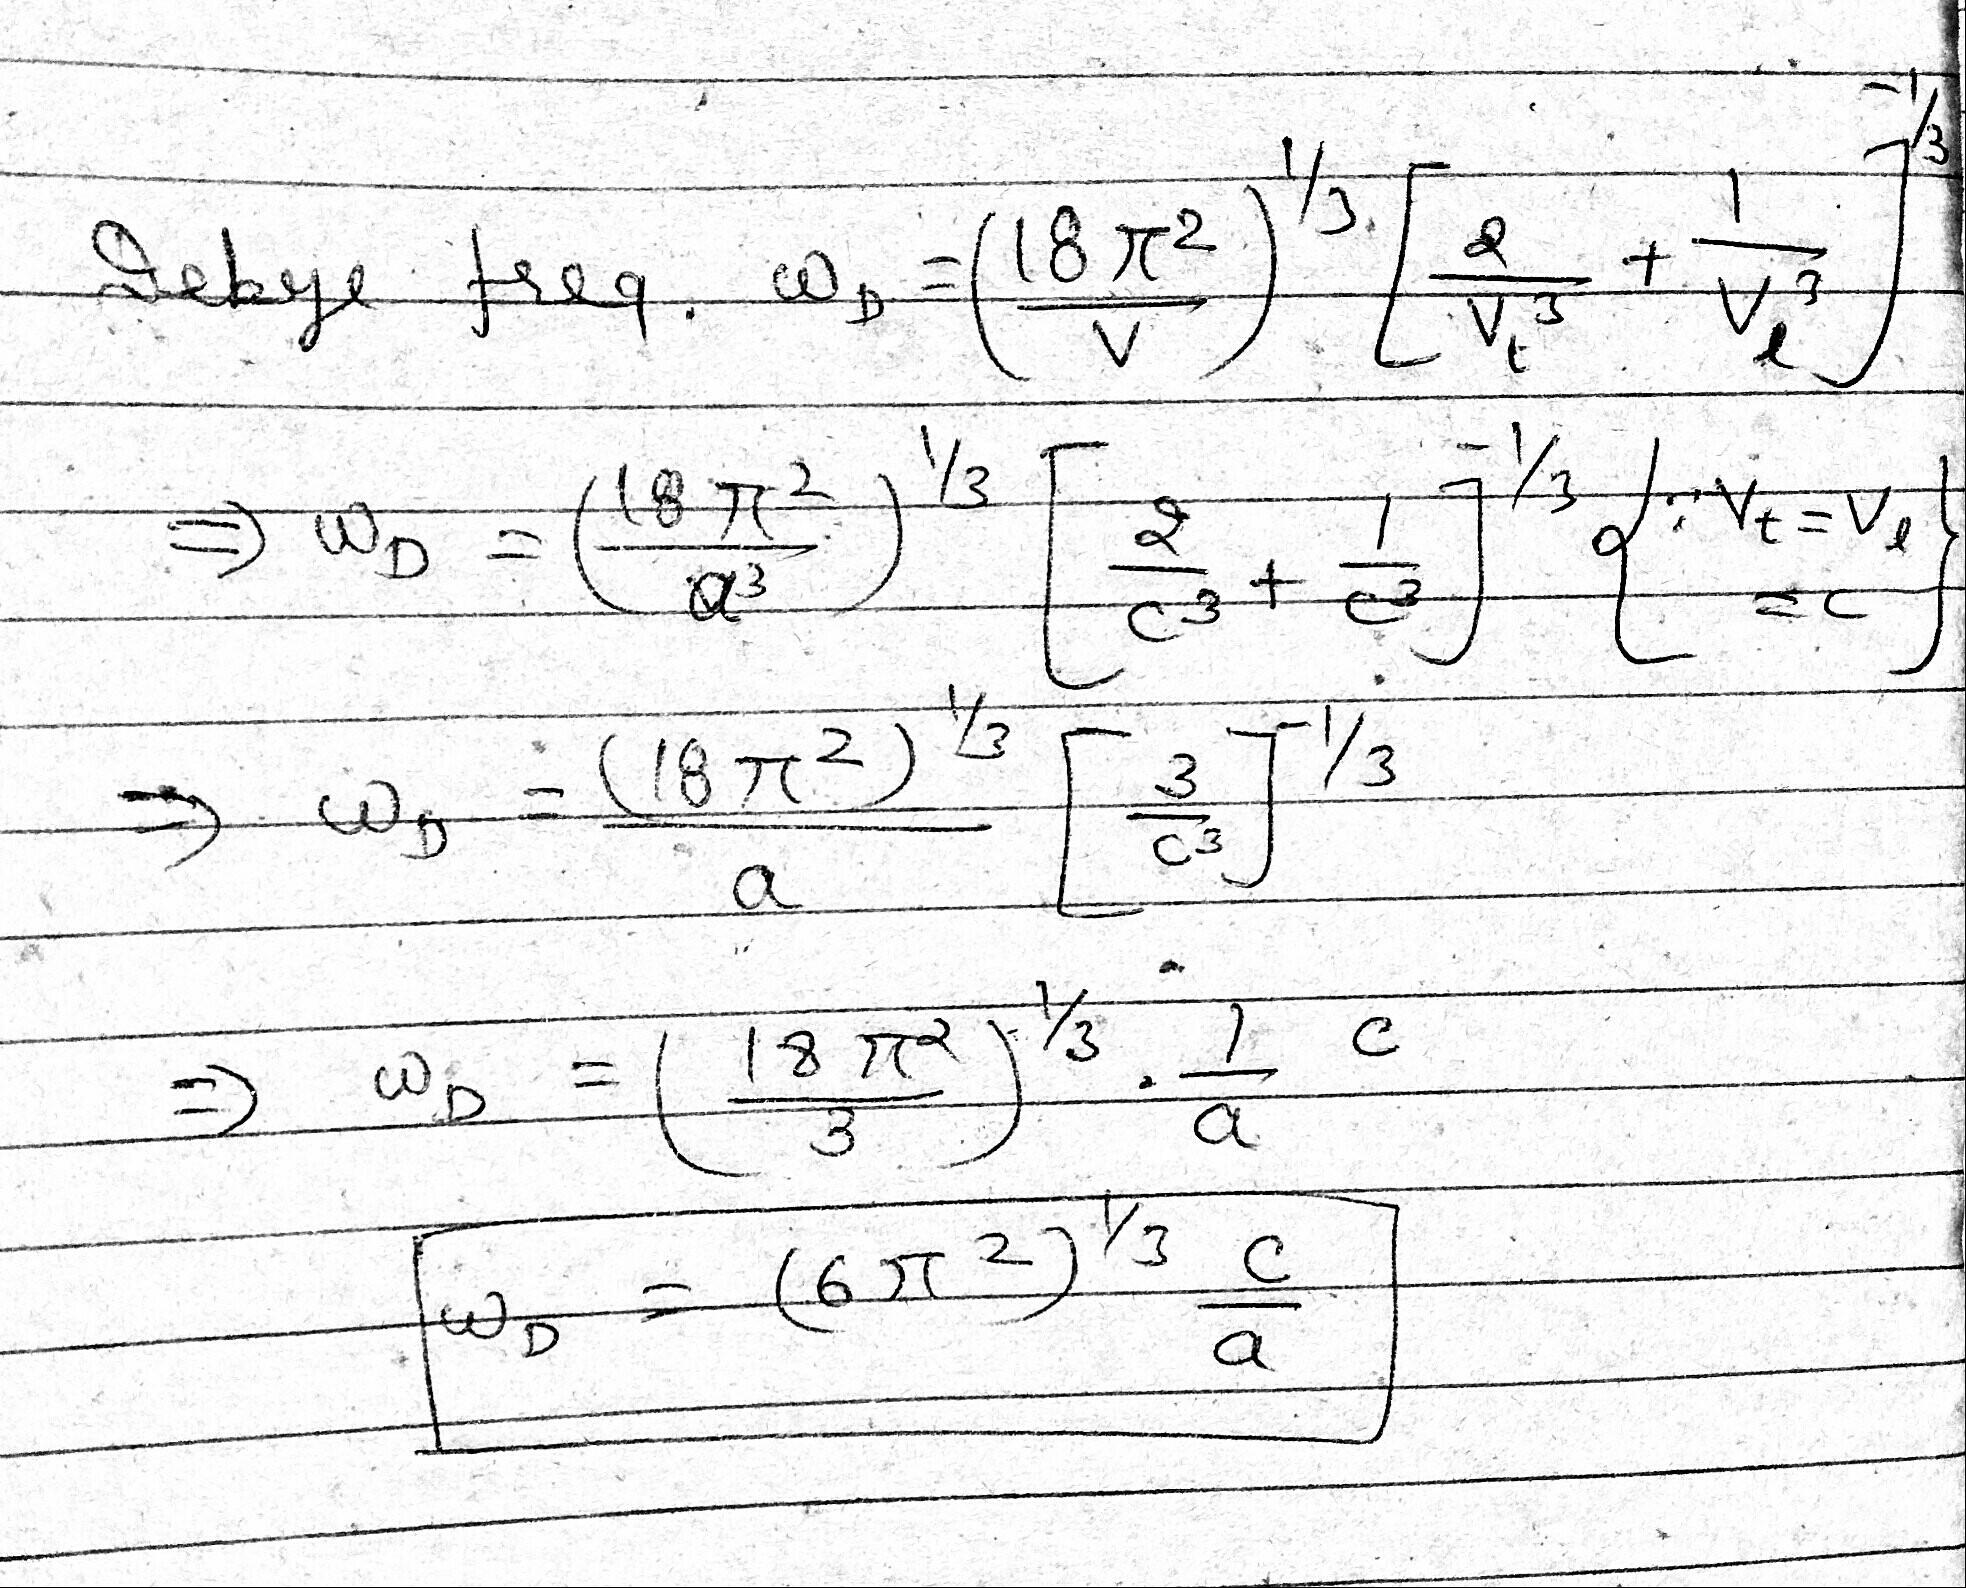 Debye freq. ω_D = (18π²/V)^1/3 [2/V_t³ + 1/V_l³]^-1/3
⇒ ω_D = (18π²/a³)^1/3 [2/c³ + 1/c³]^-1/3 {∵ V_t = V_l = c}
⇒ ω_D = (18π²)^1/3/a [3/c³]^-1/3
⇒ ω_D = (18π²/3)^1/3 · 1/a c
ω_D = (6π²)^1/3 c/a